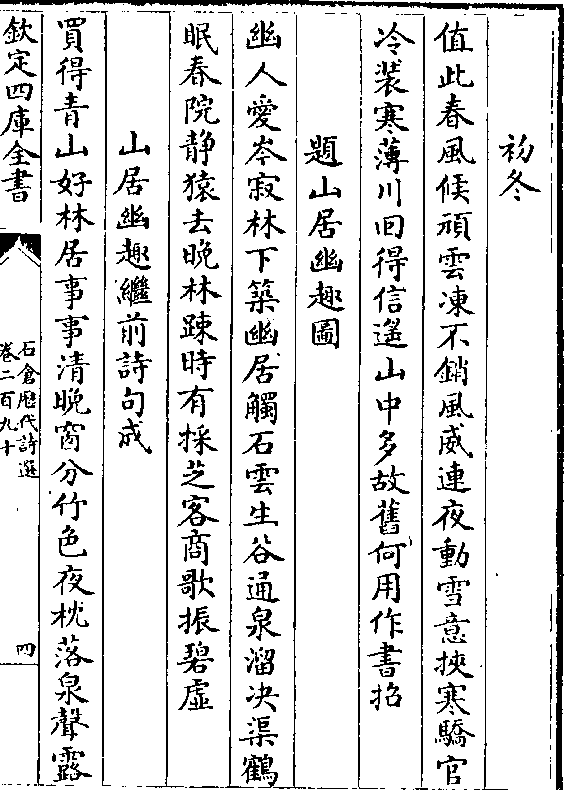 初冬
值此春風候頑雲凍不銷風威連夜動雪意挾寒驕官
冷裝寒薄川回得信遥山中多故舊何用作書招
題山居幽趣圖
幽人愛岑寂林下築幽居觸石雲生谷通泉溜决渠鶴
眠春院静猿去晚林踈時有採芝客商歌振碧虛
山居幽趣繼前詩句成
買得青山好林居事事清晚窗分竹色夜枕落泉聲露
欽定四庫全書
石倉歷代詩選
卷二百九十
四